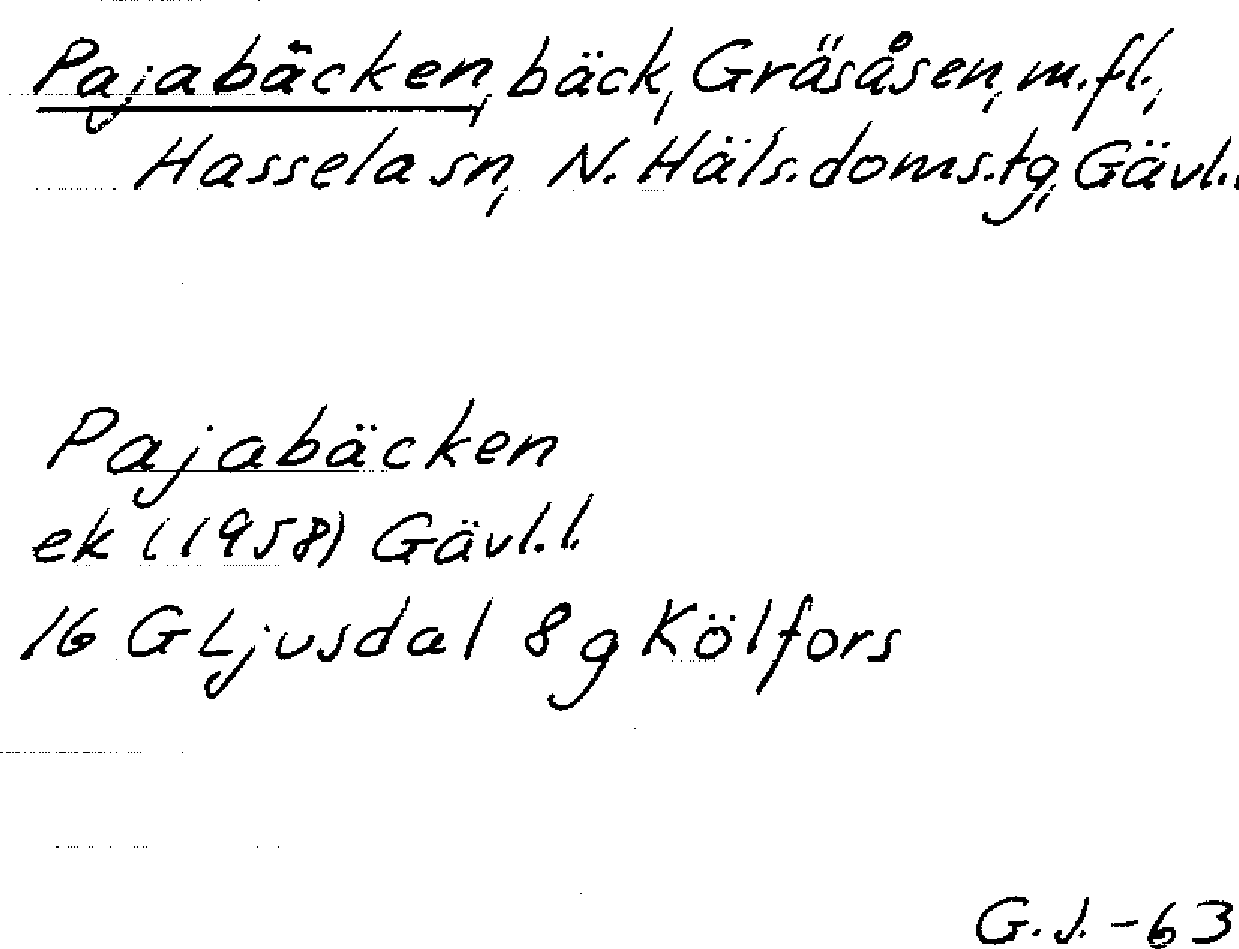 Pajabäcken, bäck, Gräsåsen, m.fl.,
Hassela sn, N. Häls. doms.tg, Gävl.
Pajabäcken
ek (1958) Gävl.l.
16 G Ljusdal 8 g Kölfors
G.J. -63